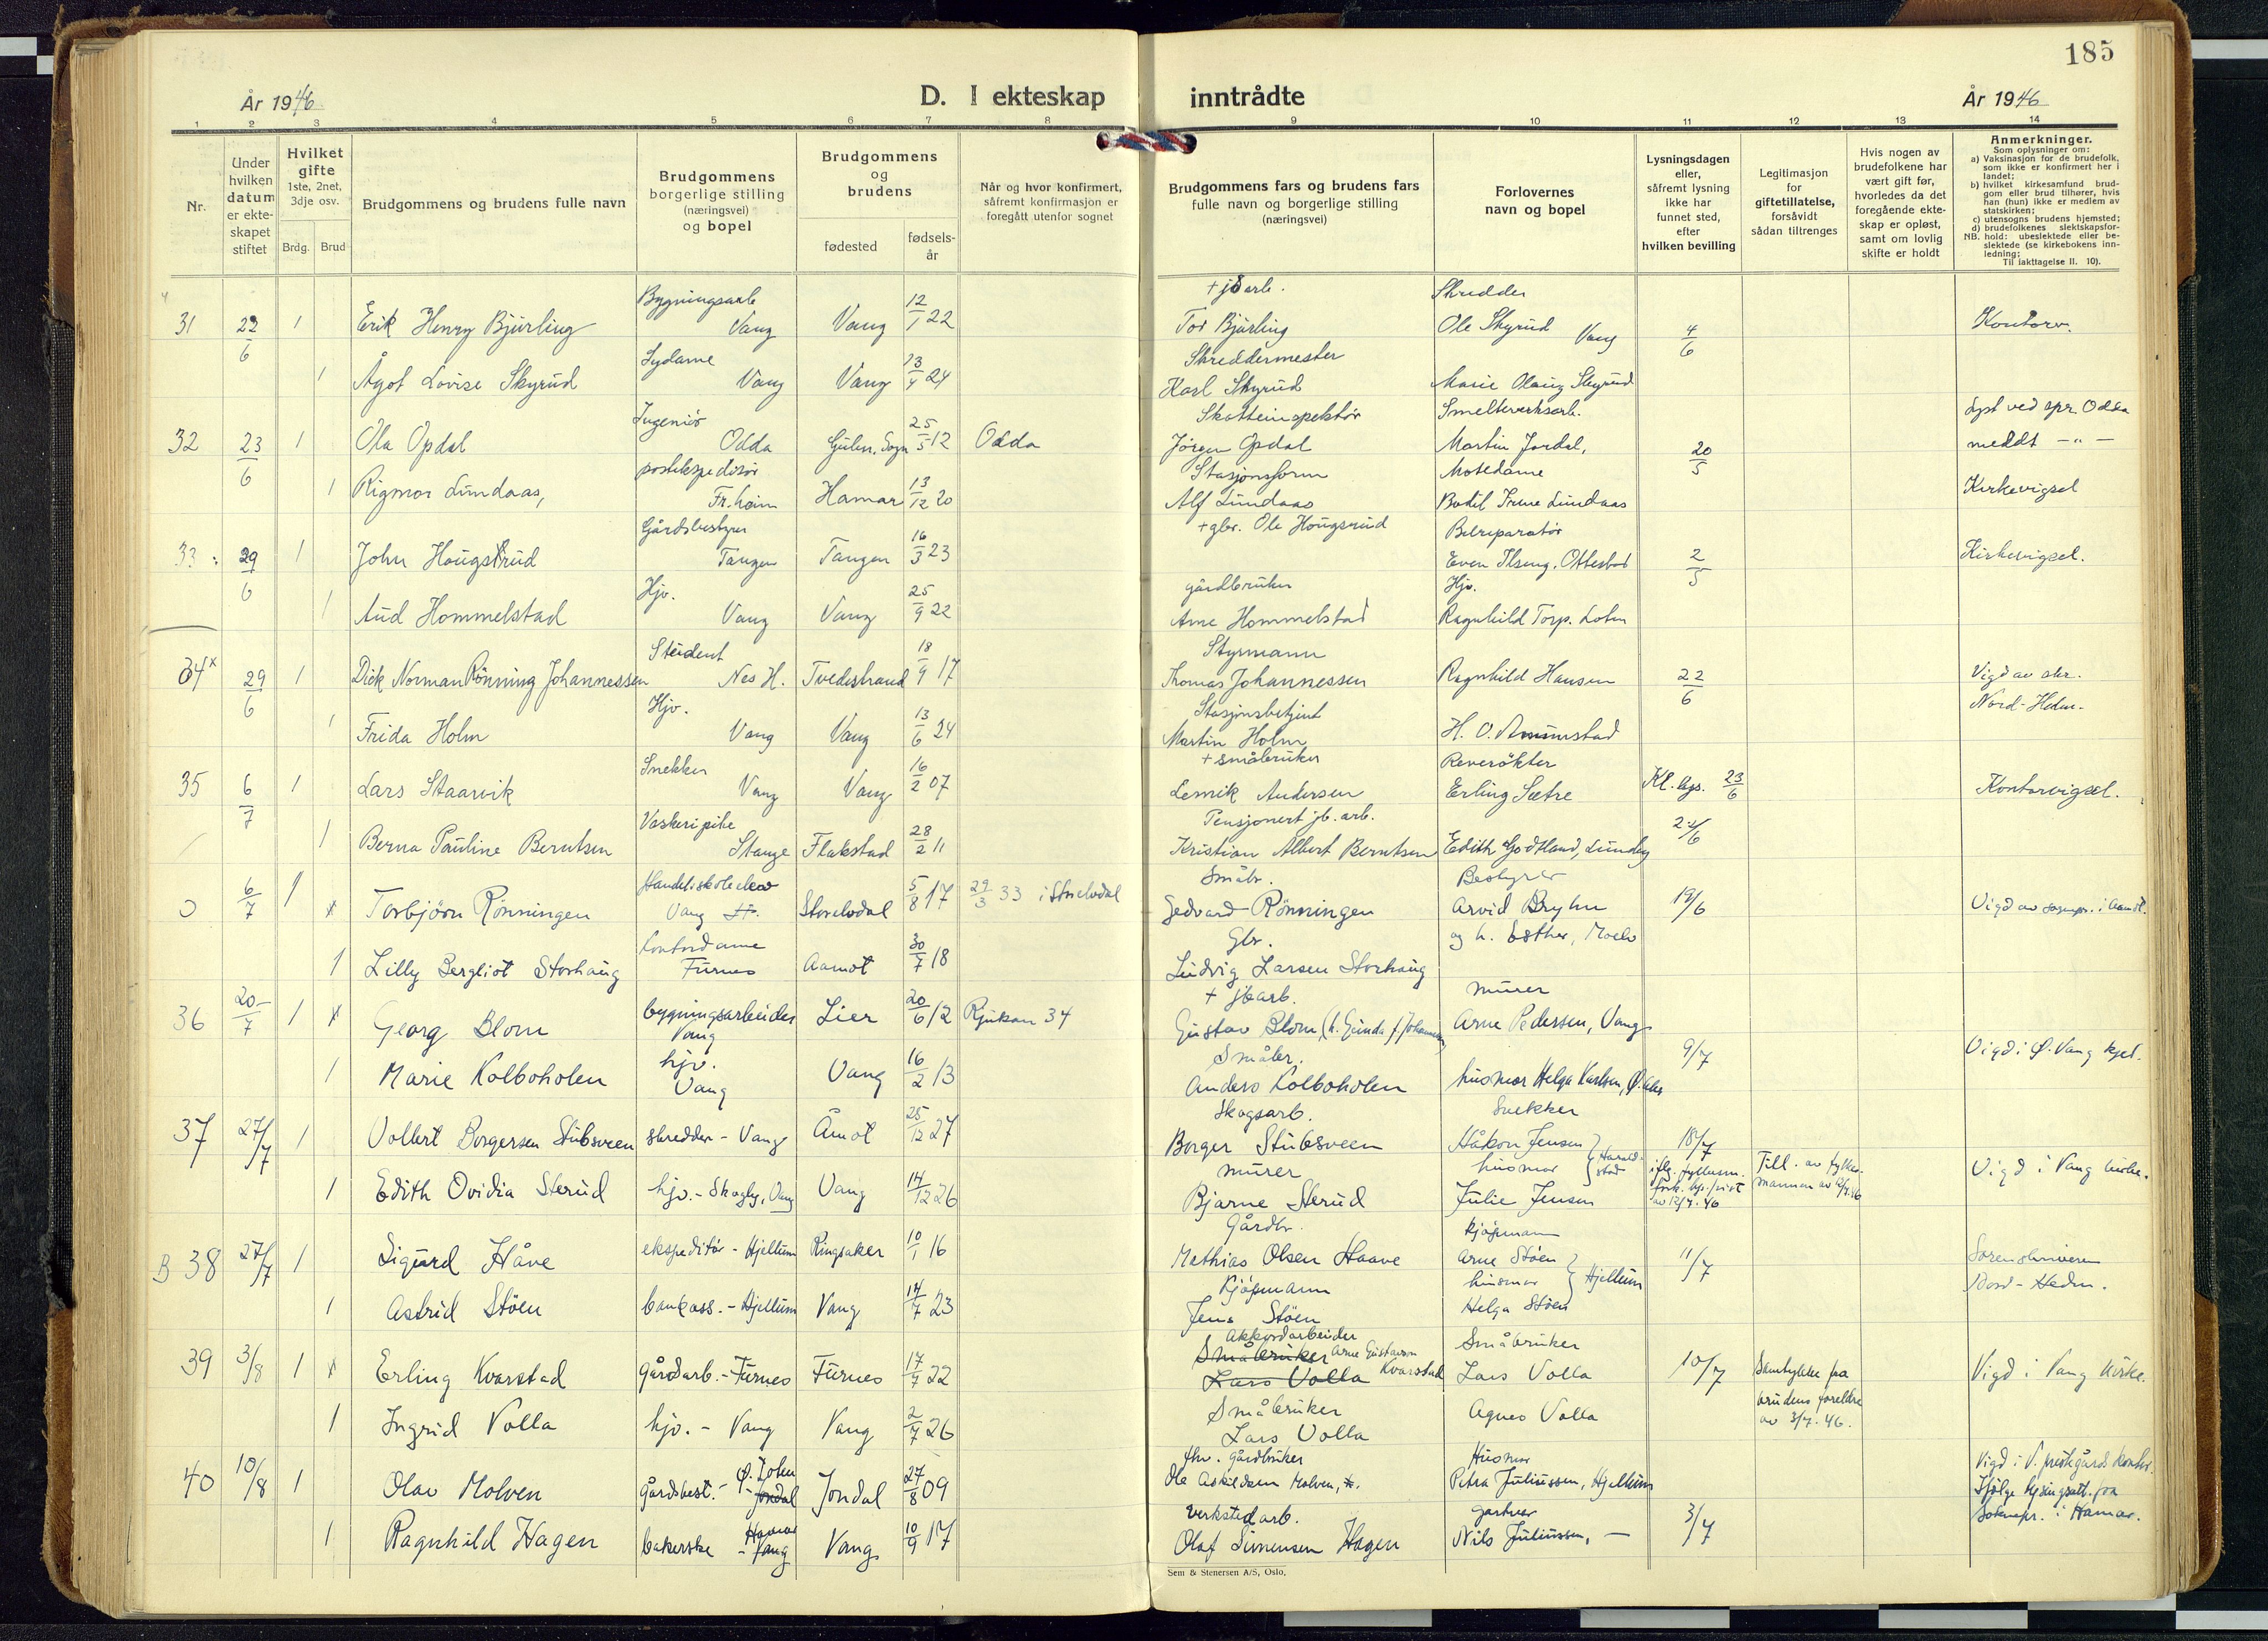 185
År 1946
D. I ekteskap inntrådte
År 1946
1 2 3 4 5 6 7 8 9 10 11 12 13 14
Nr.
Under hvilken datum er ekteskapet stiftet
Hvilket gifte 1ste, 2net, 3dje osv.
Brdg. Brud
Brudgommens og brudens fulle navn
Brudgommens borgerlige stilling (næringsvei) og bopel
Brudgommens og brudens
fødested
fødselsår
Når og hvor konfirmert, såfremt konfirmasjon er foregått utenfor sognet
Brudgommens fars og brudens fars fulle navn og borgerlige stilling (næringsvei)
Forlovernes navn og bopel
Lysningsdagen eller, såfremt lysning ikke har funnet sted, efter hvilken bevilling
Legitimasjon for giftetillatelse, forsåvidt sådan tiltrenges
Hvis nogen av brudefolkene har vært gift før, hvorledes da det foregående ekteskap er opløst, samt om lovlig skifte er holdt
Anmerkninger.
Som oplysninger om:
a) Vaksinasjon for de brudefolk, som ikke er konfirmert her i landet;
b) hvilket kirkesamfund brudgom eller brud tilhører, hvis han (hun) ikke er medlem av statskirken;
c) utensogns brudens hjemsted;
d) brudefolkenes slektskapsforhold: ubeslektede eller beslektede (se kirkebokens innledning;
NB. Til iakttagelse II. 10).
31 22/6 1 Erik Henry Bjürling Bygningsarb Vang Vang 12/1 22 + jb arb. Tor Bjürling Skredder Ole Skyrud Vang 4/6 Kontorv.
1 Ågot Lovise Skyrud Sydame Vang Vang 13/4 24 Skreddermester Karl Skyrud Marie Olaug Skyrud
32 23/6 1 Ola Opdal Ingeniør Odda Gulen, Sogn 25/5 12 Odda Skatteinspektør Jørgen Opdal Smelteverksarb. Martin Jordal, 20/5 Lyst ved spr. Odda meddt — " —
1 Rigmor Lundaas, postekspeditør Fr.heim Hamar 13/12 20 Stasjonsform Alf Lundaas Motedame Bodil Irene Lundaas Kirkevigsel
33 29/6 1 John Hougsrud Gårdsbestyrer Tangen Tangen 16/3 23 + gbr. Ole Hougsrud Bilreparatør Even Ilseng, Ottestad 2/5 Kirkevigsel.
1 Aud Hommelstad Hjv. Vang Vang 25/9 22 gårdbruker Arne Hommelstad Hjv. Ragnhild Torp. Loten
34 x 29/6 1 Dick Norman Rønning Johannessen Student Nes H. Tvedestrand 18/9 17 Styrmann Thomas Johannessen Ragnhild Hansen 22/6 Vigd av skr. Nord-Hedm.
1 Frida Holm Hjv. Vang Vang 13/6 24 Stasjonsbetjent Martin Holm H. O. Ammstad
35 6/7 1 Lars Staarvik Snekker Vang Vang 16/2 07 + småbruker Lenrik Andersen Reverøkter Erling Sætre Kl. lys. 23/6 Kontorvigsel.
1 Berna Pauline Berntsen Vaskeripike Stange Flakstad 28/2 11 Pensjonert jb. arb. Kristian Albert Berntsen Edith Godtland, Lundby
6/7 1 x Torbjörn Rønningen Handelsskoleelev Vang Storelvdal 5/8 17 29/3 33 i Storelvdal Småbr. Gedvard Rønningen Bestyrer Arvid Bryhn og h. Esther, Moelv 19/6 Vigd av sognepr. i Aamot.
1 Lilly Bergliot Storhaug Kontordame Furnes Aamot 30/7 18 Gbr. Ludvig Larsen Storhaug
36 20/7 1 x Georg Blom bygningsarbeider Vang Lier 20/6 12 Rjukan 34 + jbarb. Gustav Blom, (h. Gunda f. Johannesen) murer Arne Pedersen, Vang 9/7 Vigd i Ø. Vang kjel.
1 Marie Kolboholen hjv. Vang Vang 16/2 13 Småbr. Anders Kolboholen husmor Helga Karlsen,
37 27/7 1 Volbert Borgersen Stubsveen skredder - Vang Åmot 25/12 27 Skogsarb. Borger Stubsveen Snekker Håkon Jensen 18/7 Vigd i Vang kirke.
1 Edith Ovidia Sterud hjv. - Skogly, Vang Vang 14/12 26 murer Bjarne Sterud husmor Julie Jensen Till. av fylkesmannen av 12/7.46
B 38 27/7 1 Sigurd Håve ekspeditør - Hjellum Ringsaker 10/1 16 Gårdbr. Mathias Olsen Haave kjøpmann Arne Stöen 11/7 Sorenskriveren Nord-Hedm.
1 Astrid Stöen bankass. - Hjellum Vang 14/7 23 Kjøpmann Jens Stöen husmor Helga Stöen Hjellum
39 3/8 1 x Erling Kvarstad gårdsarb. - Furnes Furnes 17/7 22 Akkordarbeider Småbruker Arne Gustavsen Kvarstad Lars Volla Småbruker Lars Volla 10/7 Samtykke fra brudens foreldre av 3/7.46. Vigd i Vang kirke.
1 Ingrid Volla hjv. - Vang Vang 2/7 26 Småbruker Lars Volla Agnes Volla
40 10/8 1 Olav Molven gårdsbest. - Ø. Toten Jondal Jondal 27/8 09 fhv. gårdbruker Ole Askildsen Molven, Husmor Petra Juliussen, Hjellum Vigd i V. prestegårds kontor. Ifølge lysingsatt. fra Sokнepr. i Hamar.
1 Ragnhild Hagen bakerske - Hamar Vang Vang 10/9 17 verkstedarb. Olaf Simensen Hagen gartner Nils Juliussen, — 3/7
Sem & Stenersen A/S, Oslo.